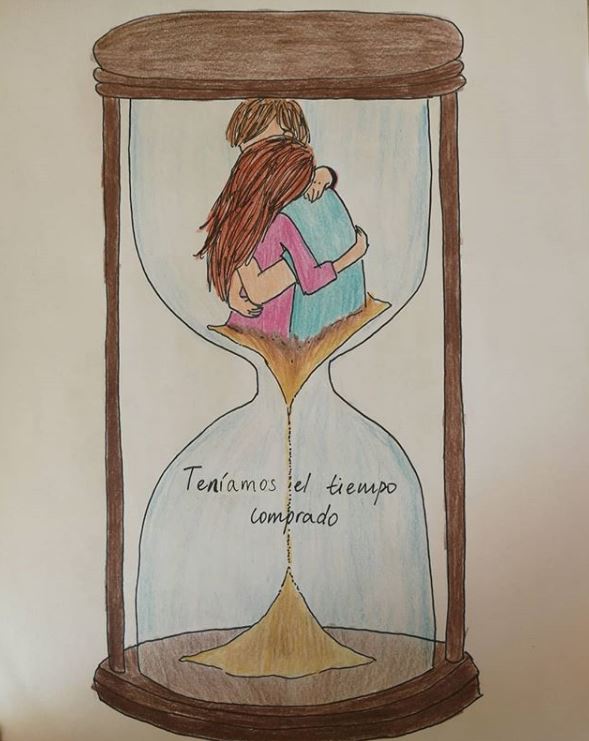 Teníamos el tiempo
comprado